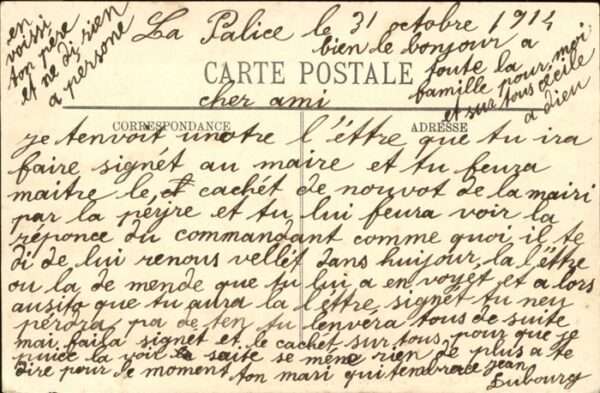 La Palice le 31 octobre 1914
bien le bonjour a
toute la
famille pour moi
et sur tous cécile
a dieu
en
voissi
ton père
et ne di rien
a persone
CARTE POSTALE
cher ami
CORRESPONDANCE
ADRESSE
je tenvoit unotre l'éttre que tu ira
faire signét au maire et tu feuza
maitre le cachét de nouvot de la mairi
par la et tu lui feura voir la
réponce du commandant comme quoi il te
di de lui renous vellét dans huijour la l'éttre
ou la de mende que tu lui a en voyét et a lors
ausito que tu aura la l'éttre signét tu neu
pérdra pa de ten tu lenvéra tous de suite
mai faisa signet et le cachét sur tous pour que je
puice la voir la saite se méme rien de plus a te
dire pour le moment ton mari qui tembrace jean
Dubourg